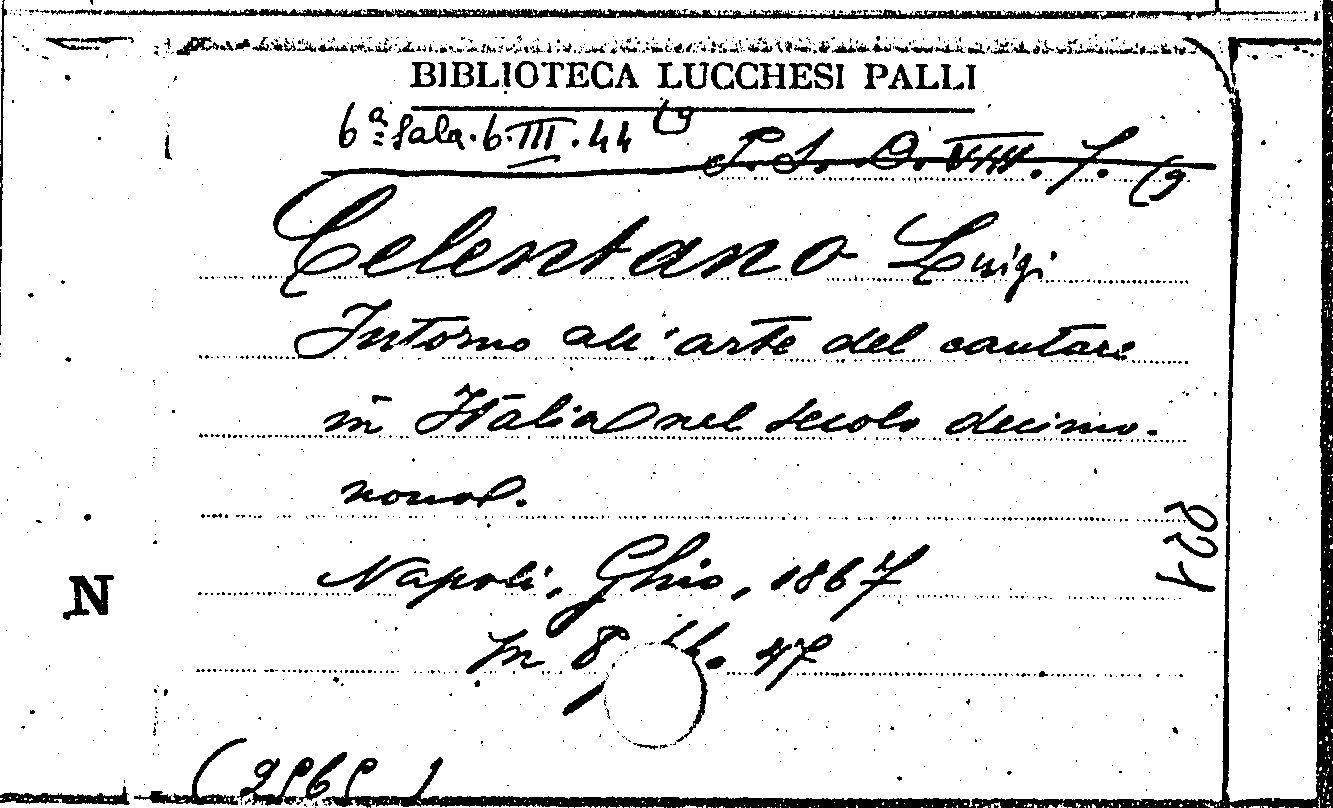 BIBLIOTECA LUCCHESI PALLI
6ª Sala. 6. III. 44 (9
P. S. O. VIII. 7. (9
Celentano Luigi
Intorno all'arte del cantare
in Italia nel secolo decimo-
nono.
Napoli, Ghio, 1867
N
In 8, 47